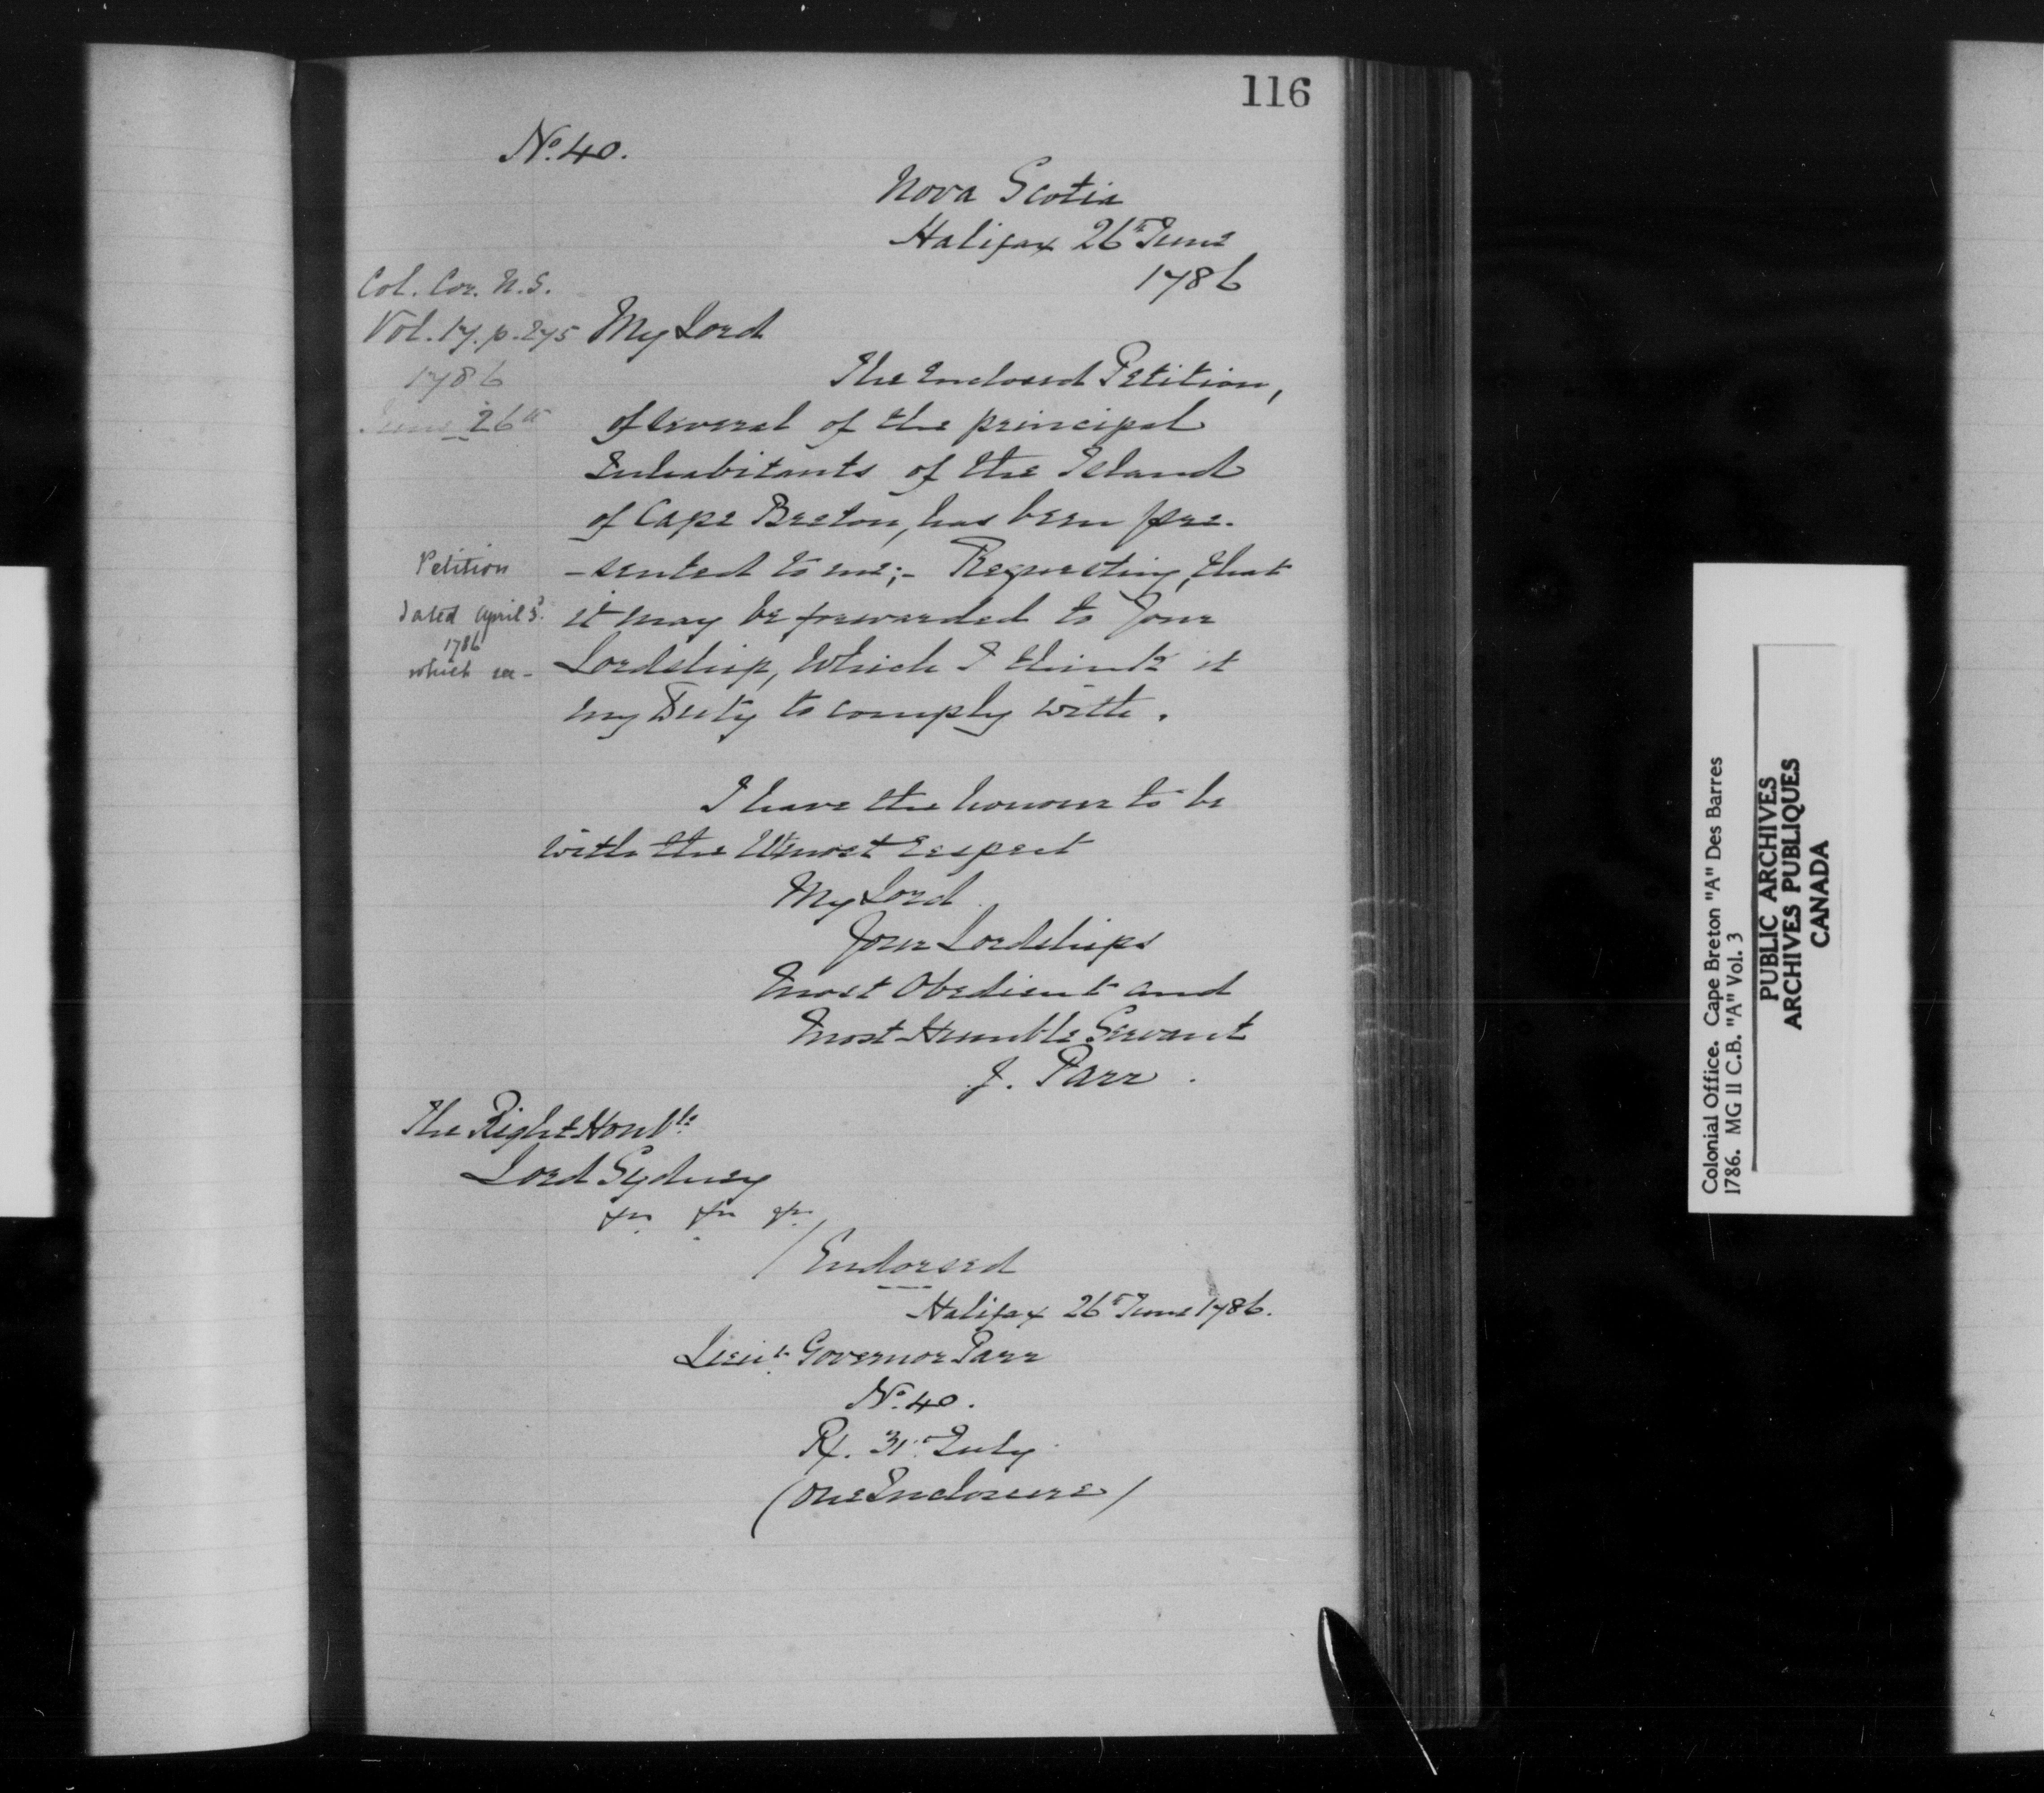 116
No. 40.
Nova Scotia
Halifax 26th June
1786
Col. Cor. N.S.
Vol. 17. p. 275
1786
June 26th
My Lord
The Enclosed Petition,
of several of the principal
Inhabitants of the Island
of Cape Breton, has been pre-
-sented to me;- Requesting, that
it may be forwarded to Your
Lordship, Which I think it
my Duty to comply with.
Petition
dated April 3d
1786
which see-
I have the honour to be
with the Utmost respect
My Lord
Your Lordships
Most Obedient and
Most Humble Servant
J. Parr.
The Right Honble
Lord Sydney
&c. &c. &c.
/ Endorsed
Halifax 26th June 1786.
Lieut. Governor Parr
No. 40.
Rx. 31st July
(One Inclosure)
Colonial Office. Cape Breton "A" Des Barres
1786. MG II C.B. "A" Vol. 3
PUBLIC ARCHIVES
ARCHIVES PUBLIQUES
CANADA